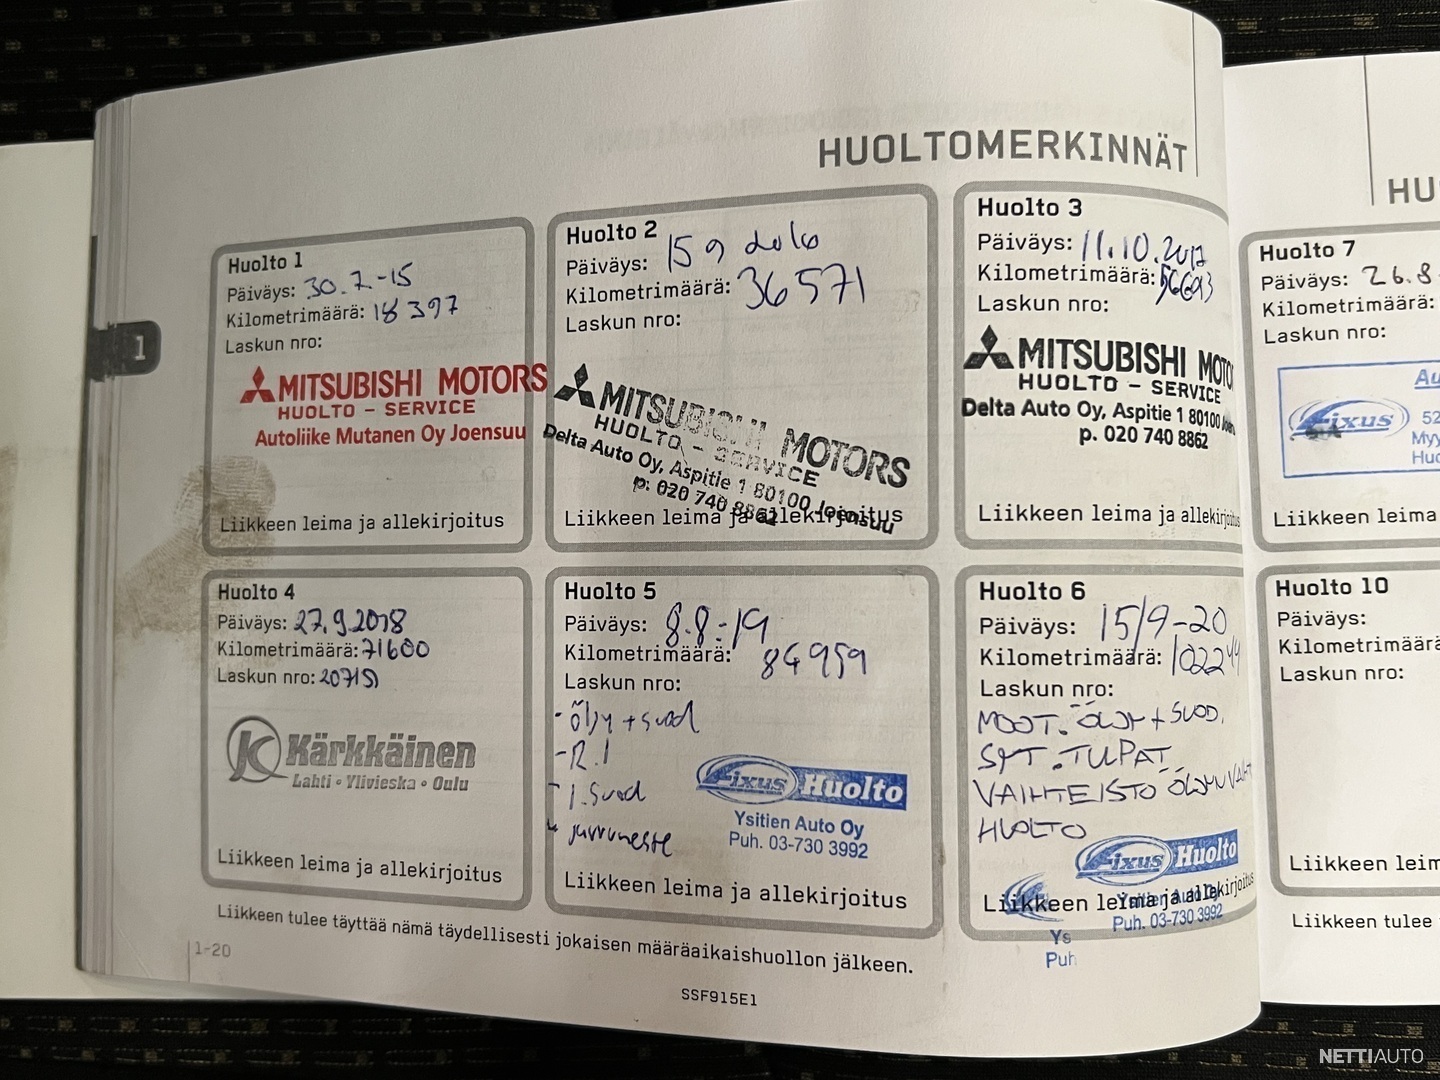 HUOLTOMERKINNÄT
Huolto 1
Päiväys: 30.7-15
Kilometrimäärä: 18 397
Laskun nro:
MITSUBISHI MOTORS
HUOLTO - SERVICE
Autoliike Mutanen Oy Joensuu
Liikkeen leima ja allekirjoitus
Huolto 2
Päiväys: 15 9
Kilometrimäärä: 36571
Laskun nro:
MITSUBISHI MOTORS
HUOLTO - SERVICE
Delta Auto Oy, Aspitie 1 80100 Joensuu
p. 020 740 8862
Liikkeen leima ja allekirjoitus
Huolto 3
Päiväys: 11.10.2017
Kilometrimäärä:
Laskun nro:
MITSUBISHI MOTO
HUOLTO - SERVICE
Delta Auto Oy, Aspitie 1 80100
p. 020 740 8862
Liikkeen leima ja allekirjoitus
Huolto 4
Päiväys: 27.9.2018
Kilometrimäärä: 71600
Laskun nro:
JK Kärkkäinen
Lahti • Ylivieska • Oulu
Liikkeen leima ja allekirjoitus
Huolto 5
Päiväys: 8.8.-19
Kilometrimäärä: 84959
Laskun nro:
- öljy + suod
- R.
- I.suod
- jarruneste
Fixus Huolto
Ysitien Auto Oy
Puh. 03-730 3992
Liikkeen leima ja allekirjoitus
Huolto 6
Päiväys: 15/9-20
Kilometrimäärä: 102244
Laskun nro:
MOOT. ÖLJY + SUOD.
SYT. TULPAT
VAIHTEISTO ÖLJYN VAIHT
HUOLTO
Fixus Huolto
Ysitien Auto Oy
Puh. 03-730 3992
Liikkeen leima ja allekirjoitus
Ys
Puh
Liikkeen tulee täyttää nämä täydellisesti jokaisen määräaikaishuollon jälkeen.
1-20
SSF915E1
1
HU
Huolto 7
Päiväys: 26.8
Kilometrimäärä:
Laskun nro:
Au
Fixus
52
Myy
Huo
Liikkeen leima
Huolto 10
Päiväys:
Kilometrimäärä
Laskun nro:
Liikkeen leim
Liikkeen tulee
NETTIAUTO